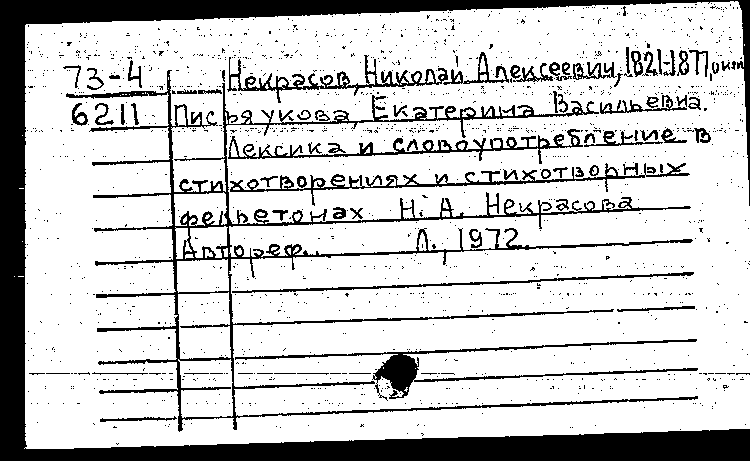 73-4 Некрасов, Николай Алексеевич, 1821-1877,
6211 Письяукова, Екатерина Васильевна.
Лексика и словоупотребление в
стихотворениях и стихотворных
фельетонах Н. А. Некрасова
Автореф... Л., 1972.